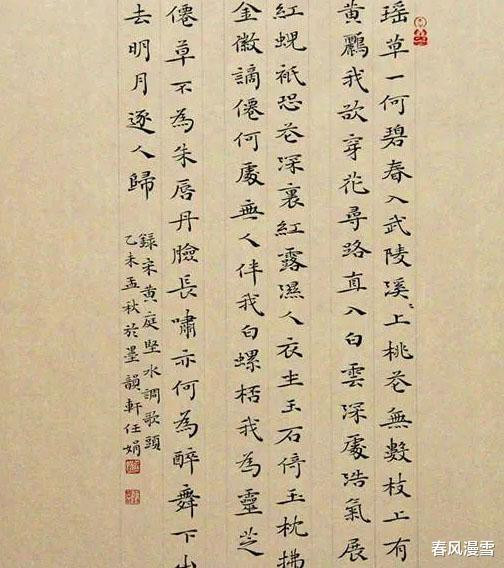 瑶草一何碧春入武陵溪〻上桃花無數枝上有
黄鸝我欲穿花尋路直入白雲深處浩氣展
紅蜺祇恐花深裏紅露濕人衣坐玉石倚玉枕拂
金徽謫僊何處無人伴我白螺桮我為靈芝
僊草不為朱唇丹臉長嘯亦何為醉舞下山
去明月逐人歸
録宋黄庭堅水調歌頭
乙未孟秋於墨韻軒任娟
春风漫雪